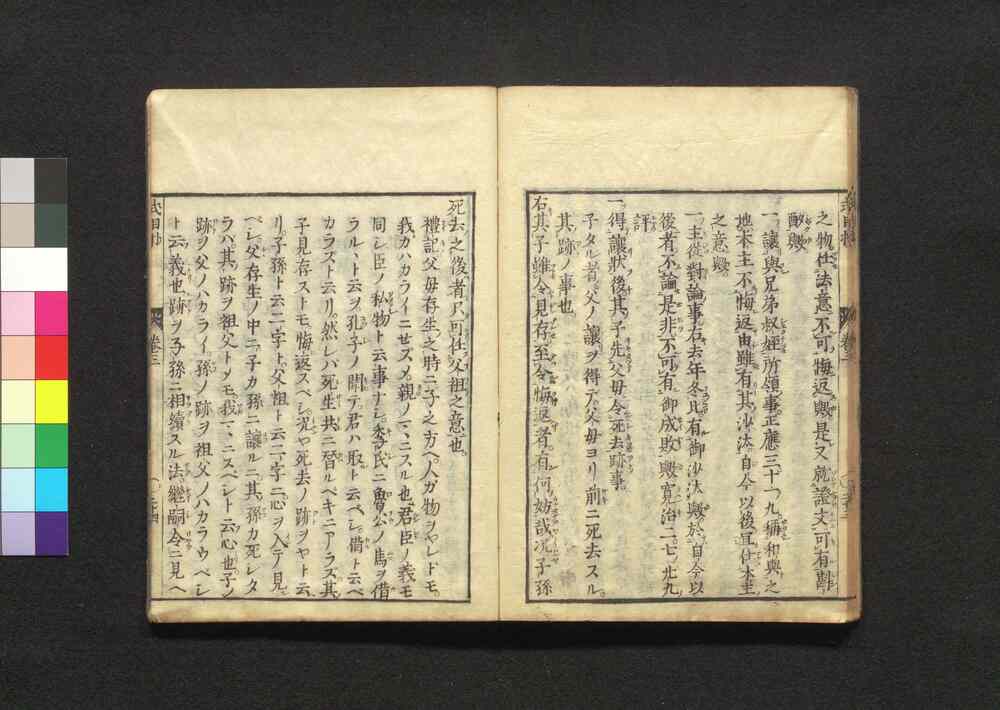 之物任法意不可悔返歟是又就證文可有斟
酌歟
一讓與兄弟叔姪所領事正應三十一九稱和與之
地本主不悔返由雖有其沙汰自今以後宜任本主
之意歟
一主從對論事右去年冬比有御沙汰歟於自今以
後者不論是非不可有御成敗歟寛治二七廿九
評
一得讓狀後其子先父母令死去跡事
子タル者父ノ讓ヲ得テ父母ヨリ前ニ死去スル
其跡ノ事也
右其子雖令見存至令悔返者有何妨哉况子孫
死去之後者只可任父祖之意也
禮記父母存生之時ニ子之方へ人ガ物ヲヤレドモ
我カハカライニセズメ親ノマヽニスル也君臣ノ義モ
同シ臣ノ私物ト云事ナレ季氏ニ魯公ノ馬ヲ借
ラルヽト云ヲ孔子ノ聞テ君ハ取ト云ベシ借ト云ベ
カラズト云リ然レバ死生共ニ督ルベキニアラズ其
子見存ストモ悔返スベシ况ヤ死去ノ跡ヲヤト云
リ子孫ト云二字ト父祖ト云二字ニ心ヲ入テ見
ベシ父存生ノ中ニ子カ孫ニ讓ルニ其孫カ死シタ
ラバ其跡ヲ祖父トメモ我マヽニスベシト云心也子ン
跡ヲ父ノハカライ孫ノ跡ヲ祖父ノハカラウベシ
ト云義也跡ヲ子孫ニ相續スル法繼嗣令ニ見ヘ
式目抄
卷三